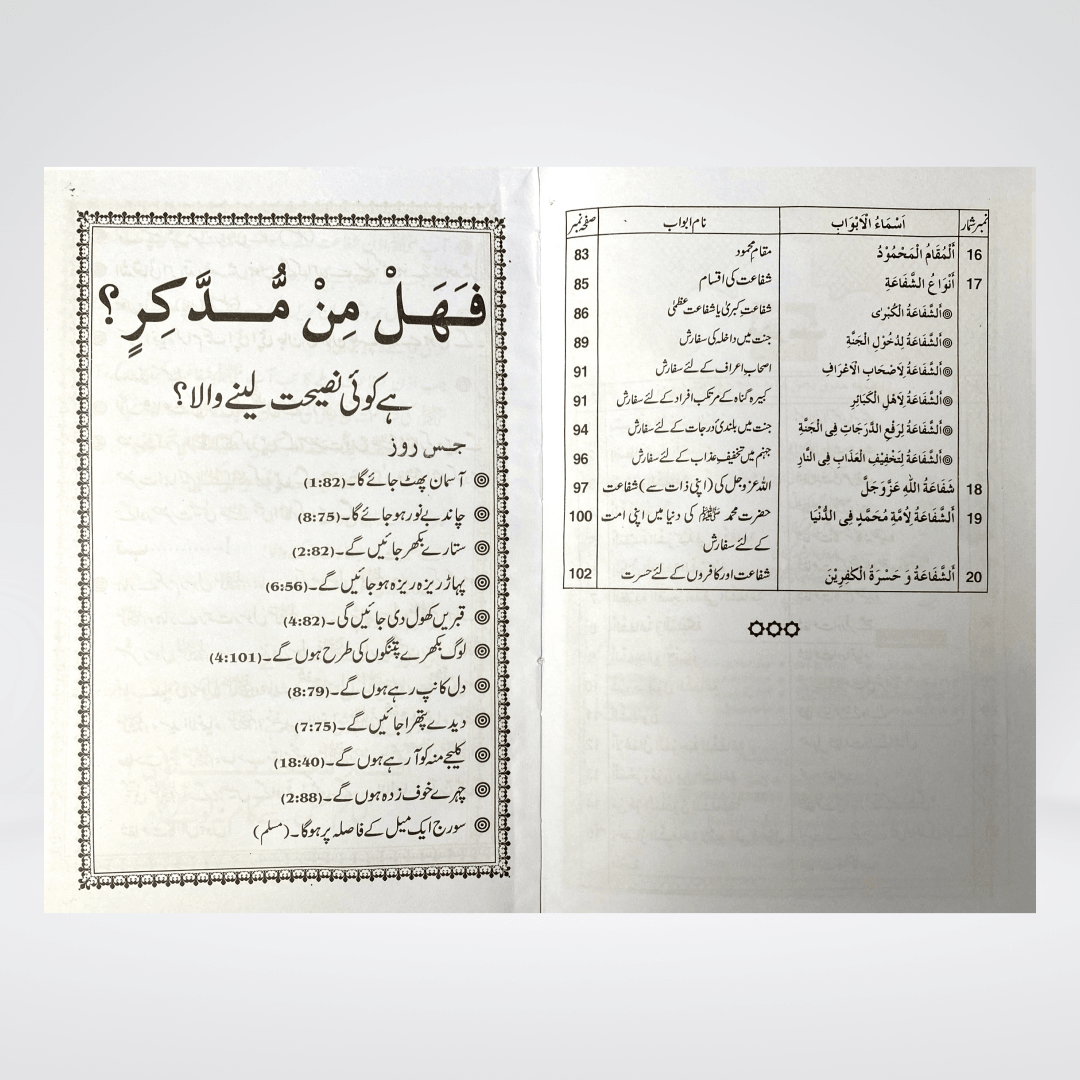 نمبر شمار اَسْمَاءُ الْاَبْوَاب نام ابواب صفحہ نمبر
16 اَلْمُقَامُ الْمَحْمُوْدُ مقامِ محمود 83
17 أَنْوَاعُ الشَّفَاعَةِ شفاعت کی اقسام 85
◎ اَلشَّفَاعَةُ الْكُبْرٰى شفاعتِ کبریٰ یا شفاعت عظمیٰ 86
◎ اَلشَّفَاعَةُ لِدُخُوْلِ الْجَنَّةِ جنت میں داخلہ کی سفارش 89
◎ اَلشَّفَاعَةُ لِاَصْحَابِ الْاَعْرَافِ اصحابِ اعراف کے لئے سفارش 91
◎ اَلشَّفَاعَةُ لِاَهْلِ الْكَبَائِرِ کبیرہ گناہ کے مرتکب افراد کے لئے سفارش 91
◎ اَلشَّفَاعَةُ لِرَفْعِ الدَّرَجَاتِ فِى الْجَنَّةِ جنت میں بلندیٔ درجات کے لئے سفارش 94
◎ اَلشَّفَاعَةُ لِتَخْفِيْفِ الْعَذَابِ فِى النَّارِ جہنم میں تخفیفِ عذاب کے لئے سفارش 96
18 شَفَاعَةُ اللّٰهِ عَزَّوَجَلَّ اللہ عزوجل کی (اپنی ذات سے) شفاعت 97
19 اَلشَّفَاعَةُ لِاُمَّةِ مُحَمَّدٍ فِى الدُّنْيَا حضرت محمد ﷺ کی دنیا میں اپنی امت 100
کے لئے سفارش
20 اَلشَّفَاعَةُ وَ حَسْرَةُ الْكٰفِرِيْنَ شفاعت اور کافروں کے لئے حسرت 102
فَهَلْ مِنْ مُّدَّكِرٍ؟
ہے کوئی نصیحت لینے والا؟
جس روز
◎ آسمان پھٹ جائے گا۔ (1:82)
◎ چاند بے نور ہو جائے گا۔ (8:75)
◎ ستارے بکھر جائیں گے۔ (2:82)
◎ پہاڑ ریزہ ریزہ ہو جائیں گے۔ (6:56)
◎ قبریں کھول دی جائیں گی۔ (4:82)
◎ لوگ بکھرے پتنگوں کی طرح ہوں گے۔ (4:101)
◎ دل کانپ رہے ہوں گے۔ (8:79)
◎ دیدے پتھرا جائیں گے۔ (7:75)
◎ کلیجے منہ کو آ رہے ہوں گے۔ (18:40)
◎ چہرے خوف زدہ ہوں گے۔ (2:88)
◎ سورج ایک میل کے فاصلہ پر ہوگا۔ (مسلم)